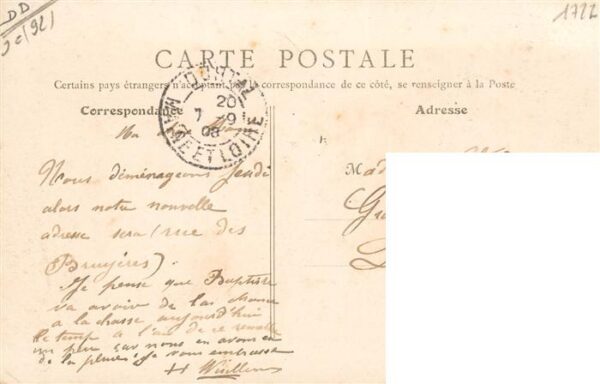 DD
1722
CARTE POSTALE
Certains pays étrangers n'acceptant pas la correspondance de ce côté, se renseigner à la Poste
Correspondance
Adresse
20
7 -9
08
MAINE ET LOIRE
Ma
Nous déménageons Jeudi
alors notre nouvelle
adresse sera (rue des
Bruyères).
Je pense que Baptiste
va avoir de la chance
a la chasse aujourd'hui
le temp a l'air de ce
un peu car nous en avons eu
de la pluies, Je vous embrasse
Mad